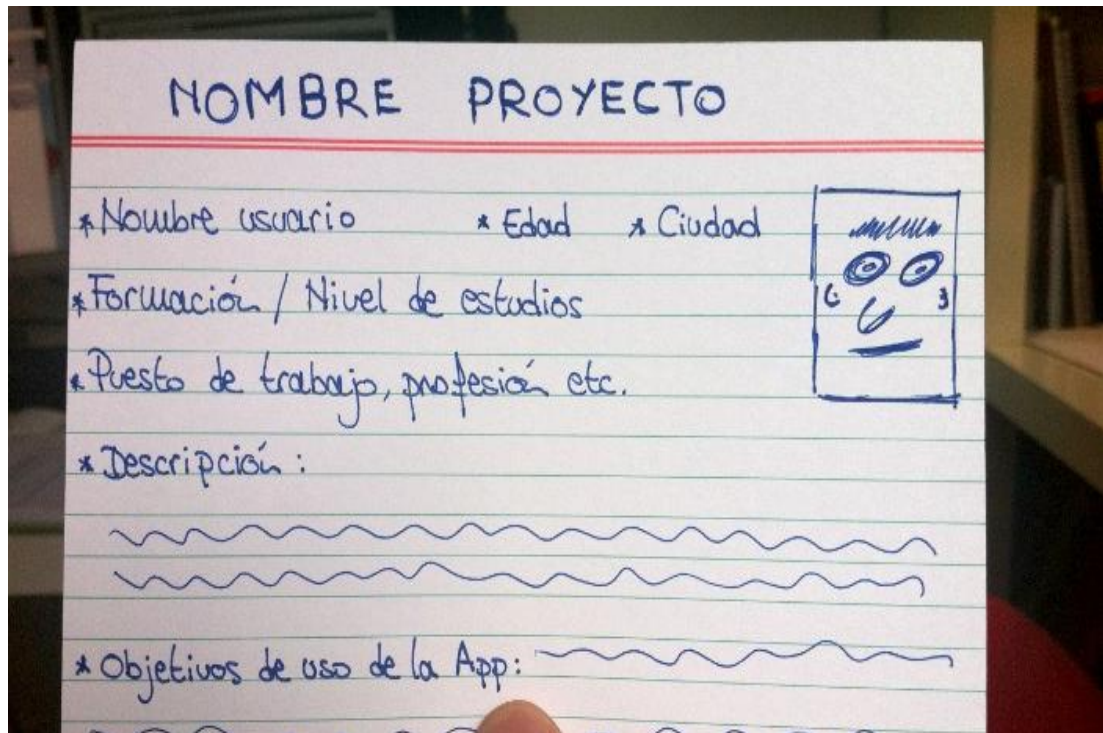 NOMBRE PROYECTO
* Nombre usuario * Edad * Ciudad
* Formación / Nivel de estudios
* Puesto de trabajo, profesión etc.
* Descripción:
* Objetivos de uso de la App: